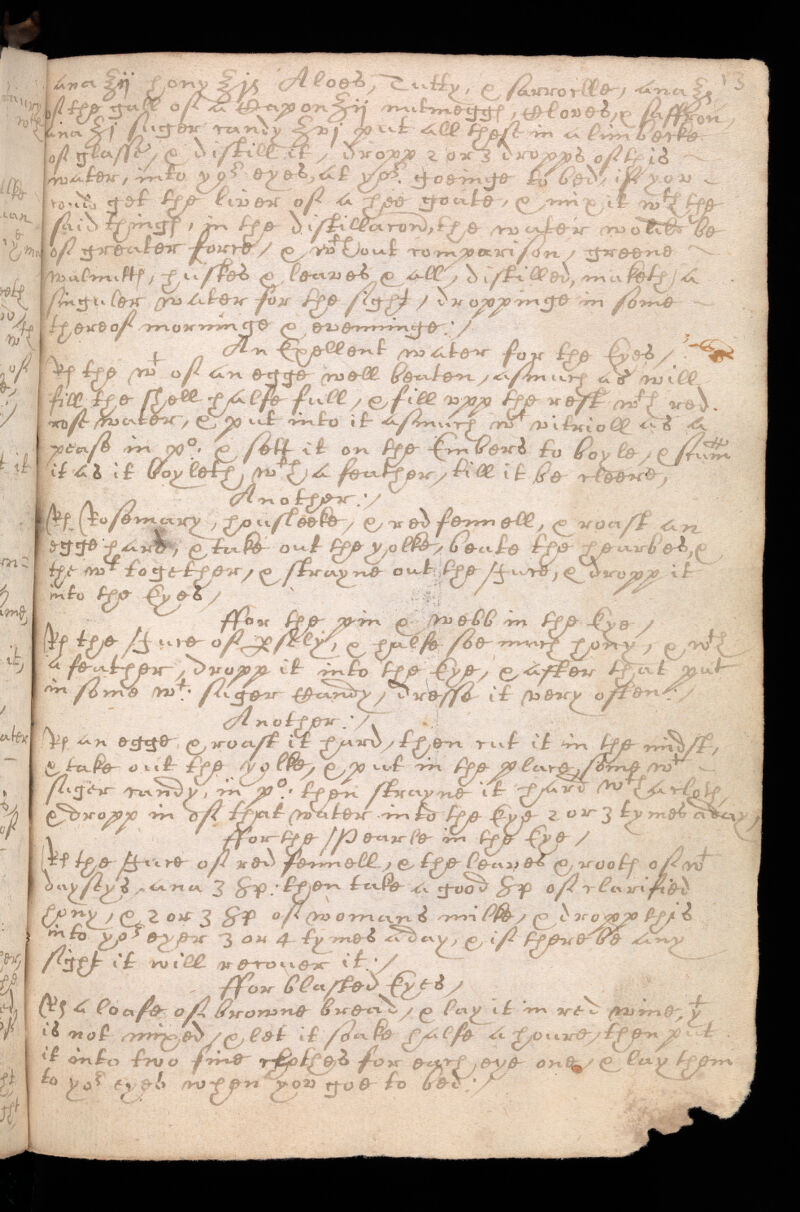 13
ana ℥ij hony ℥jß Aloes, Tutty, & sarcocolle, ana ℥ß
of the gall of a Capon ℥ij nutmeggs, Cloves, & saffron,
ana ℥j suger candy ℥vj put all thes in a limbecke
of glasse, & distill it, dropp 2 or 3 dropps of this
water, into yor eyes, at yor goeinge to bed, if you
could get the liver of a hee goate, & mix it wth the
said things, in the distillacon, the water would be
of greater force, & wthout comparison, greene
walnutts, huskes & leaves & all, distilled, maketh a
singuler water for the sight, droppinge in some
thereof morninge & evenninge:/
An Exellent water for the Eyes,/
Rx the wt of an egge well beaten, asmuch as will
fill the shell halfe full, & fill upp the rest wth red
rose water, & put into it asmuch wt vitrioll as a
pease in po: & sett it on the Embers to boyle, & scum
it as it boyleth, wth a feather, till it be cleere,
Another:/
Rx Rosemary, housleeke, & red fennell, & roast an
egge hard, & take out the yolke, beate the hearbes, &
the wt together, & strayne out the Juce, & dropp it
into the Eyes,
ffor the pin & webb in the Eye,/
Rx the Juce of psely, & halfe soe much hony, & wth
a feather, dropp it into the Eye, & after that put
in some wt: suger Candy, dresse it very often:/
Another:/
Rx an egge & roast it hard, then cut it in the midst,
& take out the yolke, & put in the place, some wt
suger candy, in po: then strayne it hard wth a cloth,
& dropp in of that water into the Eye 2 or 3 tymes a day,
ffor the Pearle in the Eye,/
Rx the Juce of red fennell, & the leaves & roots of wt
dayseys ana 3 sp: then take a good sp of clarified
hony, & 2 or 3 sp of womans milke, & dropp this
into yor eyes 3 or 4 tymes a day, & if there be any
sight it will recover it:/
ffor blasted Eyes,/
Rx a loafe of browne bread, & lay it in red wine, yt
is not mixed, & let it soake halfe a houre, then put
it into two fine clothes for each eye one, & lay them
to yor eyes when you goe to bed:/